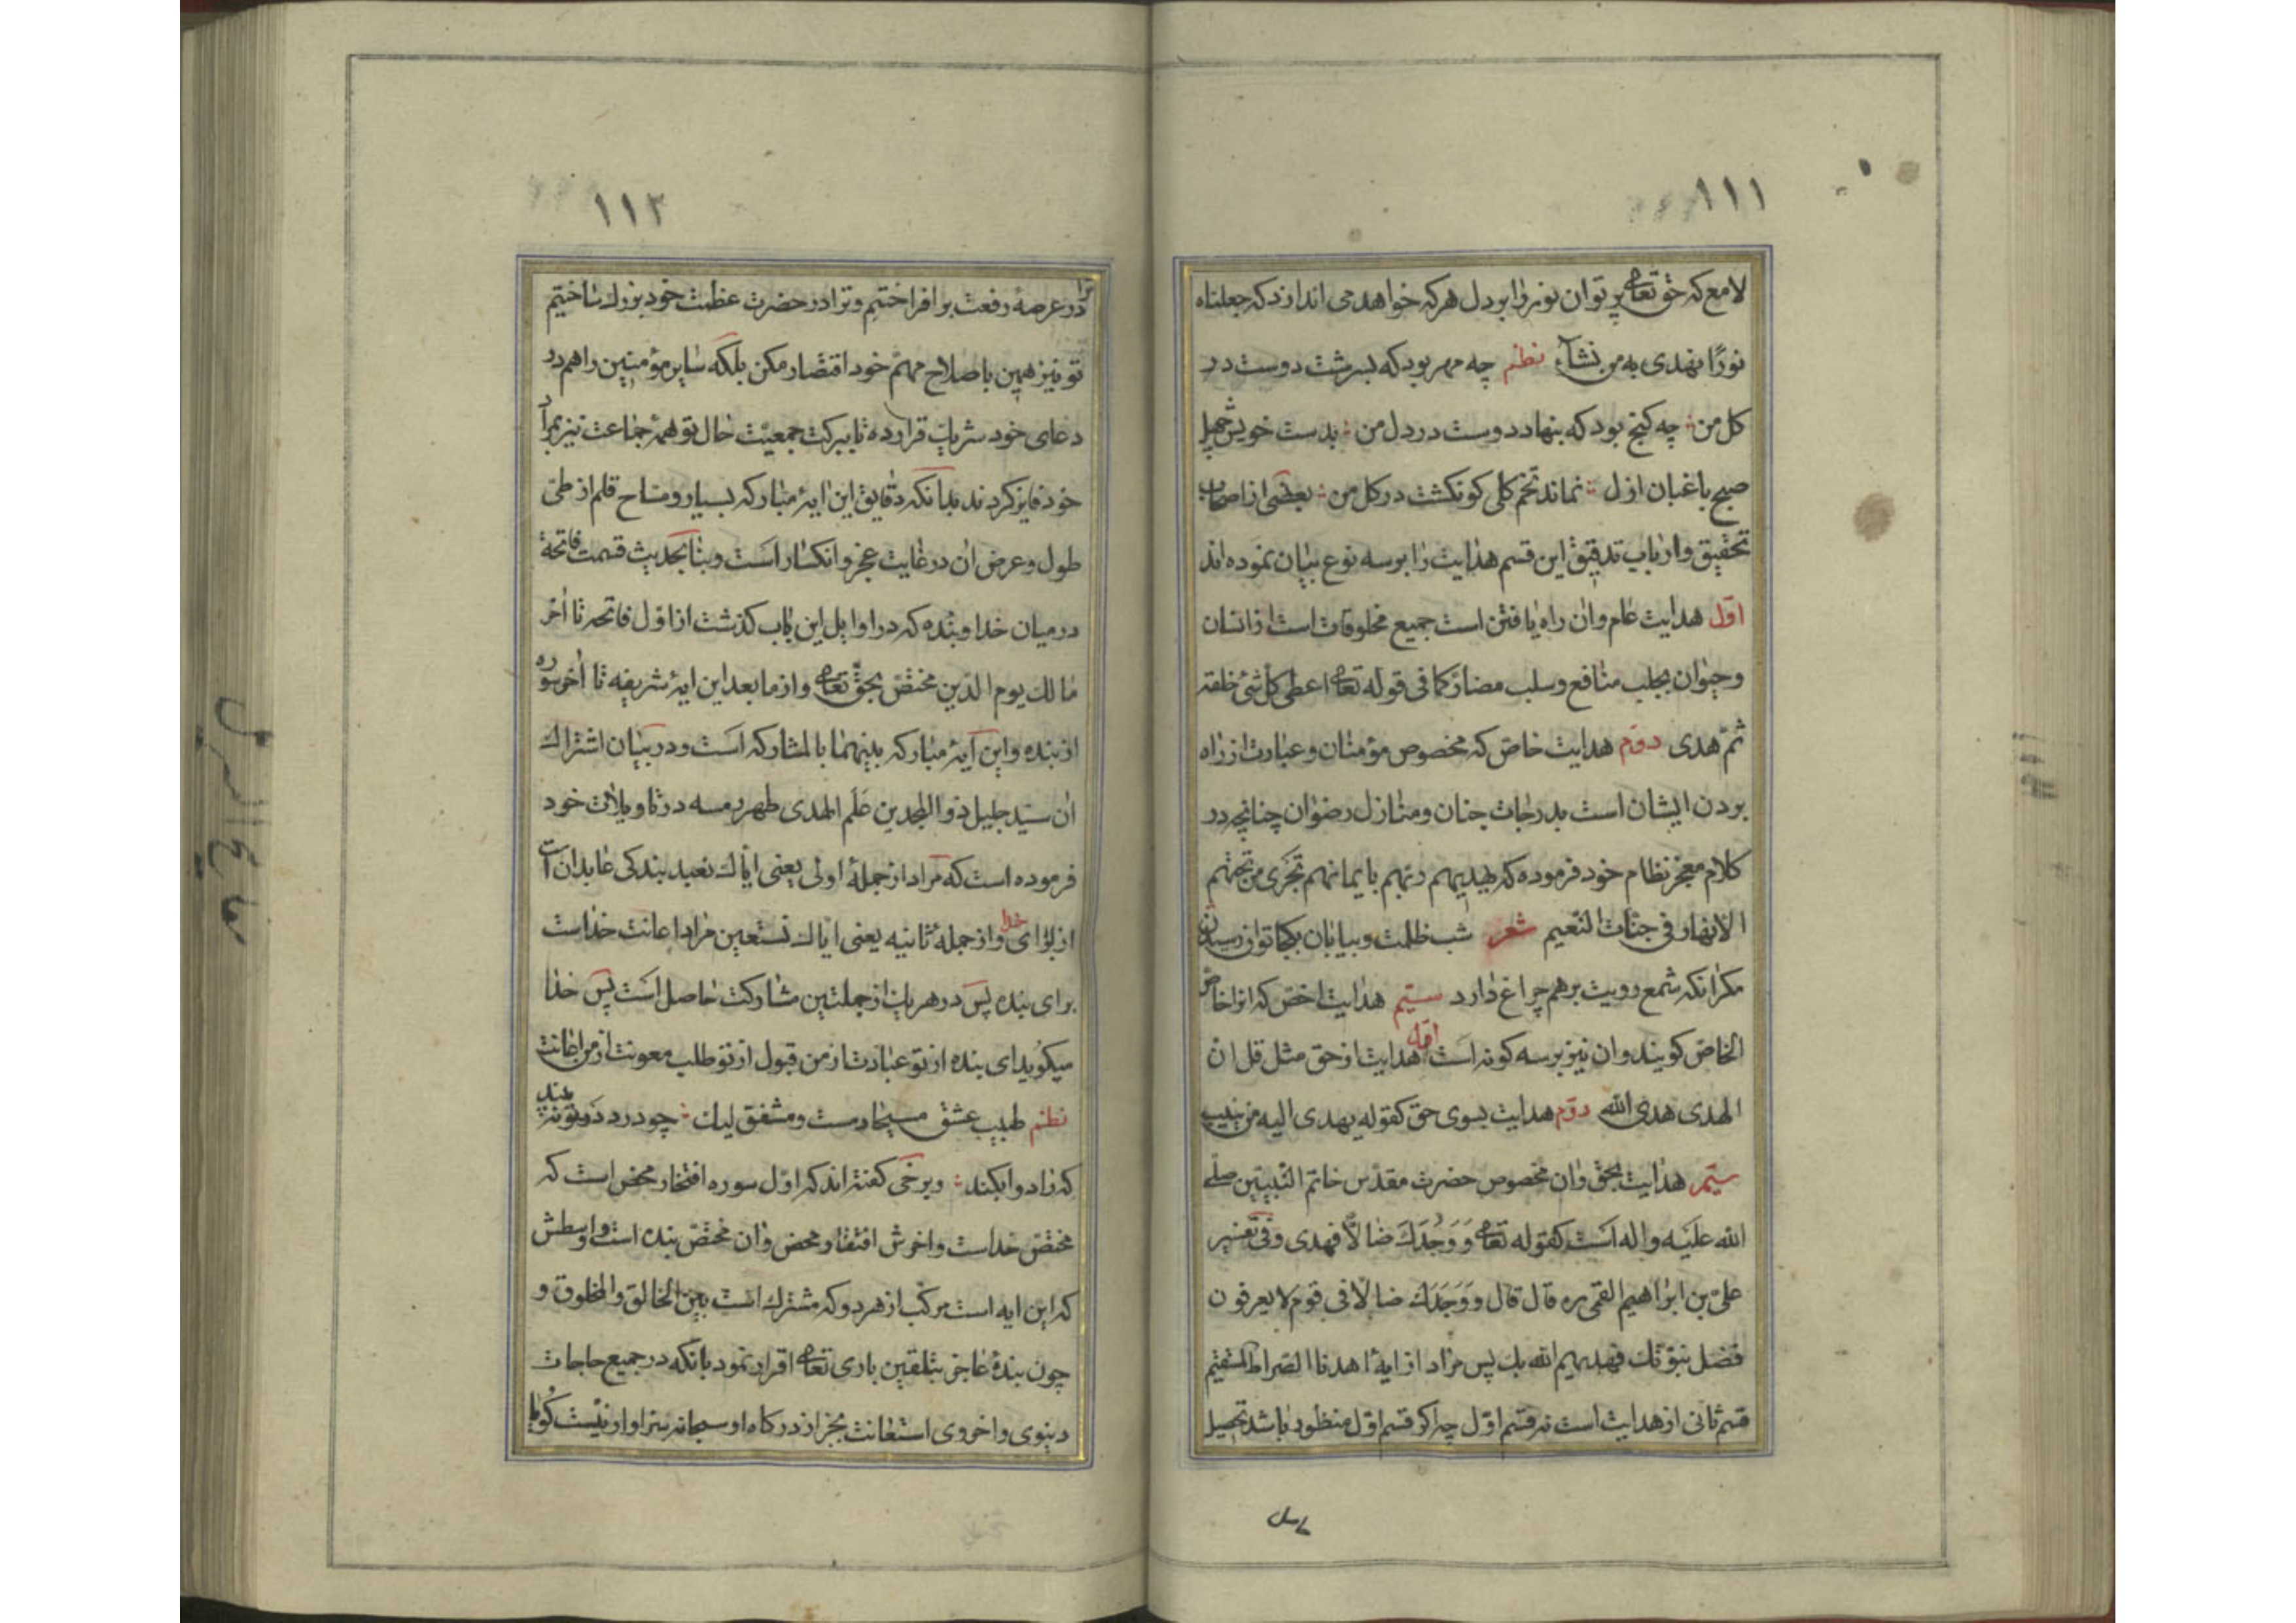 ١١١
لامع که حق تعالی پرتوان نور را بر دل هر که خواهد می اندازد که جعلناه
نورًا نهدی به من نشآء نظم چه مهر بود که بسرشت دوست در
کل من چه کنج بود که بنهاد دوست در دل من بدست خویش چهل
صبح باغبان ازل نماند تخم کلی کو نکشت در کل من بعضی از اصحاب
تحقیق و ارباب تدقیق این قسم هدایت را بر سه نوع بیان نموده اند
اوّل هدایت عام و ان راه یافتن است جمیع مخلوقات است از انسان
و حیوان بجلب منافع و سلب مضارّ کما فی قوله تعالی اعطی کل شئ خلقه
ثمّ هدی دوّم هدایت خاصّ که مخصوص مؤمنان و عبارت از راه
بردن ایشان است بدرجات جنان و منازل رضوان چنانچه در
کلام معجز نظام خود فرموده که یهدیهم ربّهم بایمانهم تجری من تحتهم
الانهار فی جنّات النّعیم شعر شب ظلمت و بیابان بکجا توان رسیدن
مکر آنکه شمع رویت برهم چراغ دارد سیّم هدایت اخصّ که انرا خاصّ
الخاصّ کویند و ان نیز بر سه کونه است اوّل هدایت از حق مثل قل ان
الهدی هدی الله دوّم هدایت بسوی حق کقوله یهدی الیه من ینیب
سیّم هدایت بحق و ان مخصوص حضرت مقدّس خاتم النّبیّین صلّی
الله علیه و اله است کقوله تعالی وَ وَجَدَكَ ضالّاً فهدی و فی تفسیر
علیّ بن ابراهیم القمی ره قال قال وَ وَجَدَكَ ضالّاً فی قوم لا یعرفون
فضل نبوّتك فهدیهم الله بك پس مراد از ایهٔ اهدنا الصّراط المستقیم
قسم ثانی از هدایت است نه قسم اوّل چه اکر قسم اوّل منظور باشد تحصیل
١١٢
ترا در عرصهٔ رفعت برافراختیم و ترا در حضرت عظمت خود بزرك ساختیم
تو نیز همین باصلاح مهمّ خود اقتصار مکن بلکه سایر مؤمنین را هم در
دعای خود شریك قرار ده تا ببرکت جمعیّت حال تو همه جماعت نیز بمراد
خود فایز کردند بدانکه دقایق این ایهٔ مبارکه بسیار و مسّاح قلم از طیّ
طول و عرض ان در غایت عجز و انکسار است و بنا بحدیث قسمت فاتحة
در میان خدا و بنده که در اوایل این باب کذشت از اوّل فاتحه تا اخر
مالك یوم الدّین مختصّ بحقّ تعالی و از ما بعد این ایهٔ شریفه تا اخر سوره
از بنده و این آیهٔ مبارکه بینهما بالمشارکه است و در بیان اشتراك
ان سیّد جلیل ذو المجدین عَلَم الهدی طهر رمسه در تاویلات خود
فرموده است که مراد از جملهٔ اولی یعنی ایّاك نعبد بندکی عابدان است
از برای خدا و از جملهٔ ثانیه یعنی ایاك نستعین مراد اعانت خداست
برای بنده پس در هر یك از جملتین مشارکت حاصل است پس خدا
میکوید ای بنده از تو عبادت از من قبول از تو طلب معونت از من اعانت
نظم طبیب عشق مسیحا دمست و مشفق لیك چو درد در تو نه بیند
که را دوا بکند و برخی کفته اند که اوّل سوره افتخار محض است که
مختصّ خداست و اخرش افتقار محض و ان مختصّ بنده است و اوسطش
که این ایه است مرکّب از هر دو که مشترك است بین الخالق و المخلوق و
چون بندهٔ عاجز بتلقین باری تعالی اقرار نمود بانکه در جمیع حاجات
دنیوی و اخروی استعانت بجز از درکاه او سبحانه سزاوار نیست کویا